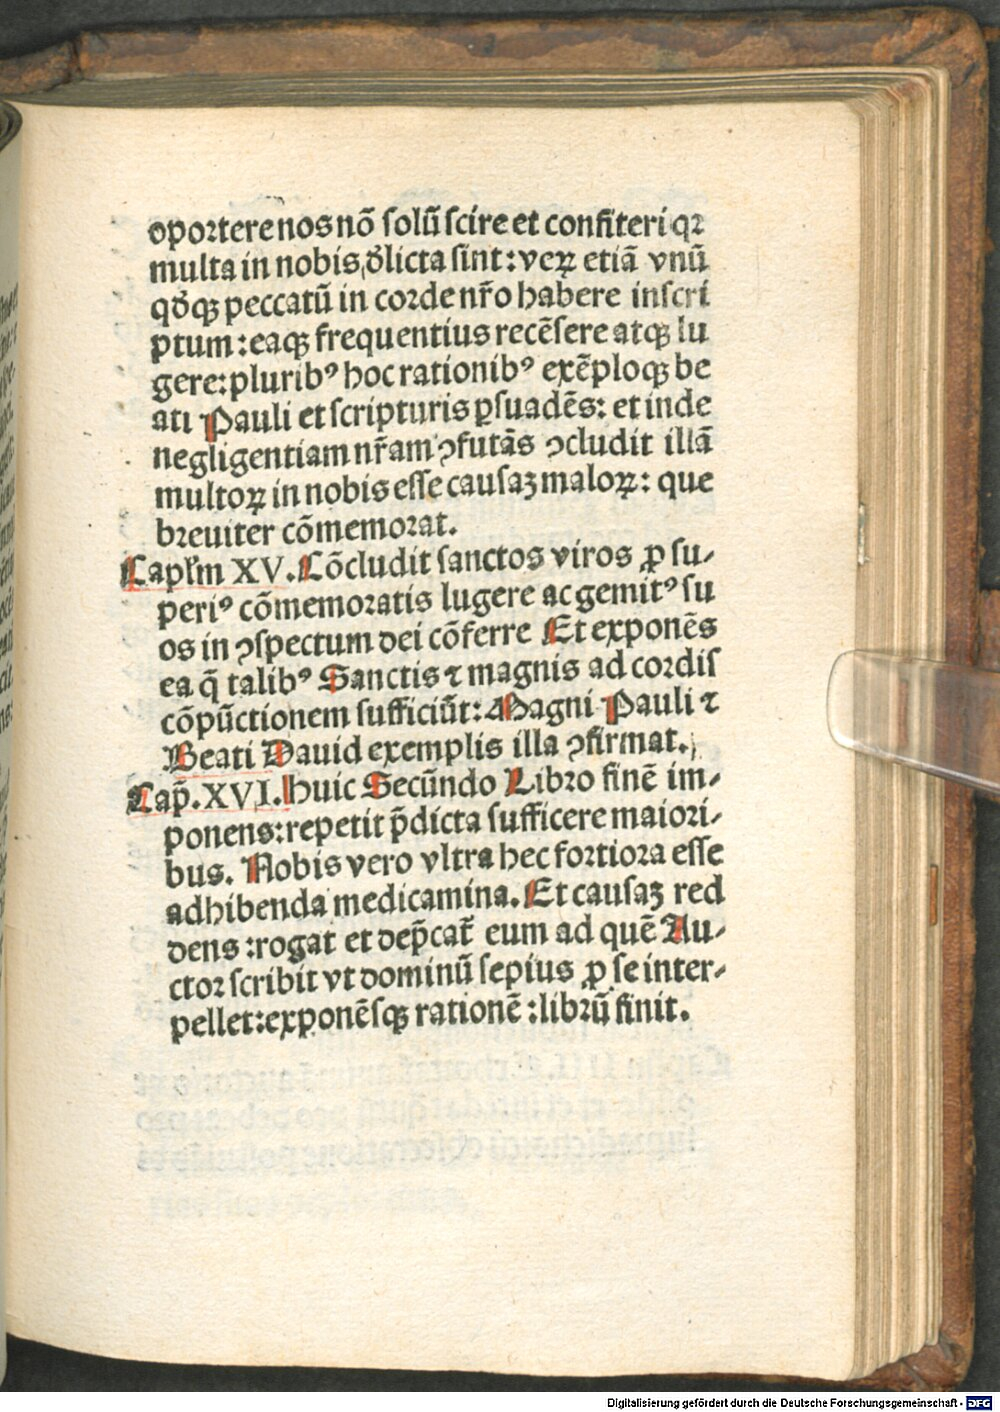 oportere nos nō ſolū ſcire et confiteri qꝛ
multa in nobis ð̛licta ſint: veꝝ etiā vnū
qð̛qꝫ peccatū in corde nr̄o habere inſcri
ptum: eaqꝫ frequentius recēſere atqꝫ lu
gere: pluribꝰ hoc rationibꝰ exēploqꝫ be
ati Pauli et ſcripturis ꝑſuadēs: et inde
negligentiam nr̄am ꝯfutās ꝯcludit illā
multoꝝ in nobis eſſe cauſaꝫ maloꝝ: que
breuiter cōmemorat.
Capl̄m XV. Cōcludit ſanctos viros ꝓ ſu-
periꝰ cōmemoratis lugere ac gemitꝰ ſu
os in ꝯſpectum dei cōferre Et exponēs
ea q̄ talibꝰ Sanctis ⁊ magnis ad cordiſ
cōpūctionem ſufficiūt: Magni Pauli ⁊
Beati Dauid exemplis illa ꝯfirmat.
Cap̄. XVI. Huic Secūndo Libro finē im-
ponens: repetit p̄dicta ſufficere maiori-
bus. Nobis vero vltra hec fortiora eſſe
adhibenda medicamina. Et cauſaꝫ red
dens: rogat et dep̄cat̄ eum ad quē Au-
ctor ſcribit vt dominū ſepius ꝓ ſe inter-
pellet: exponēſqꝫ rationē: librū finit.
Digitalisierung gefördert durch die Deutsche Forschungsgemeinschaft - DFG